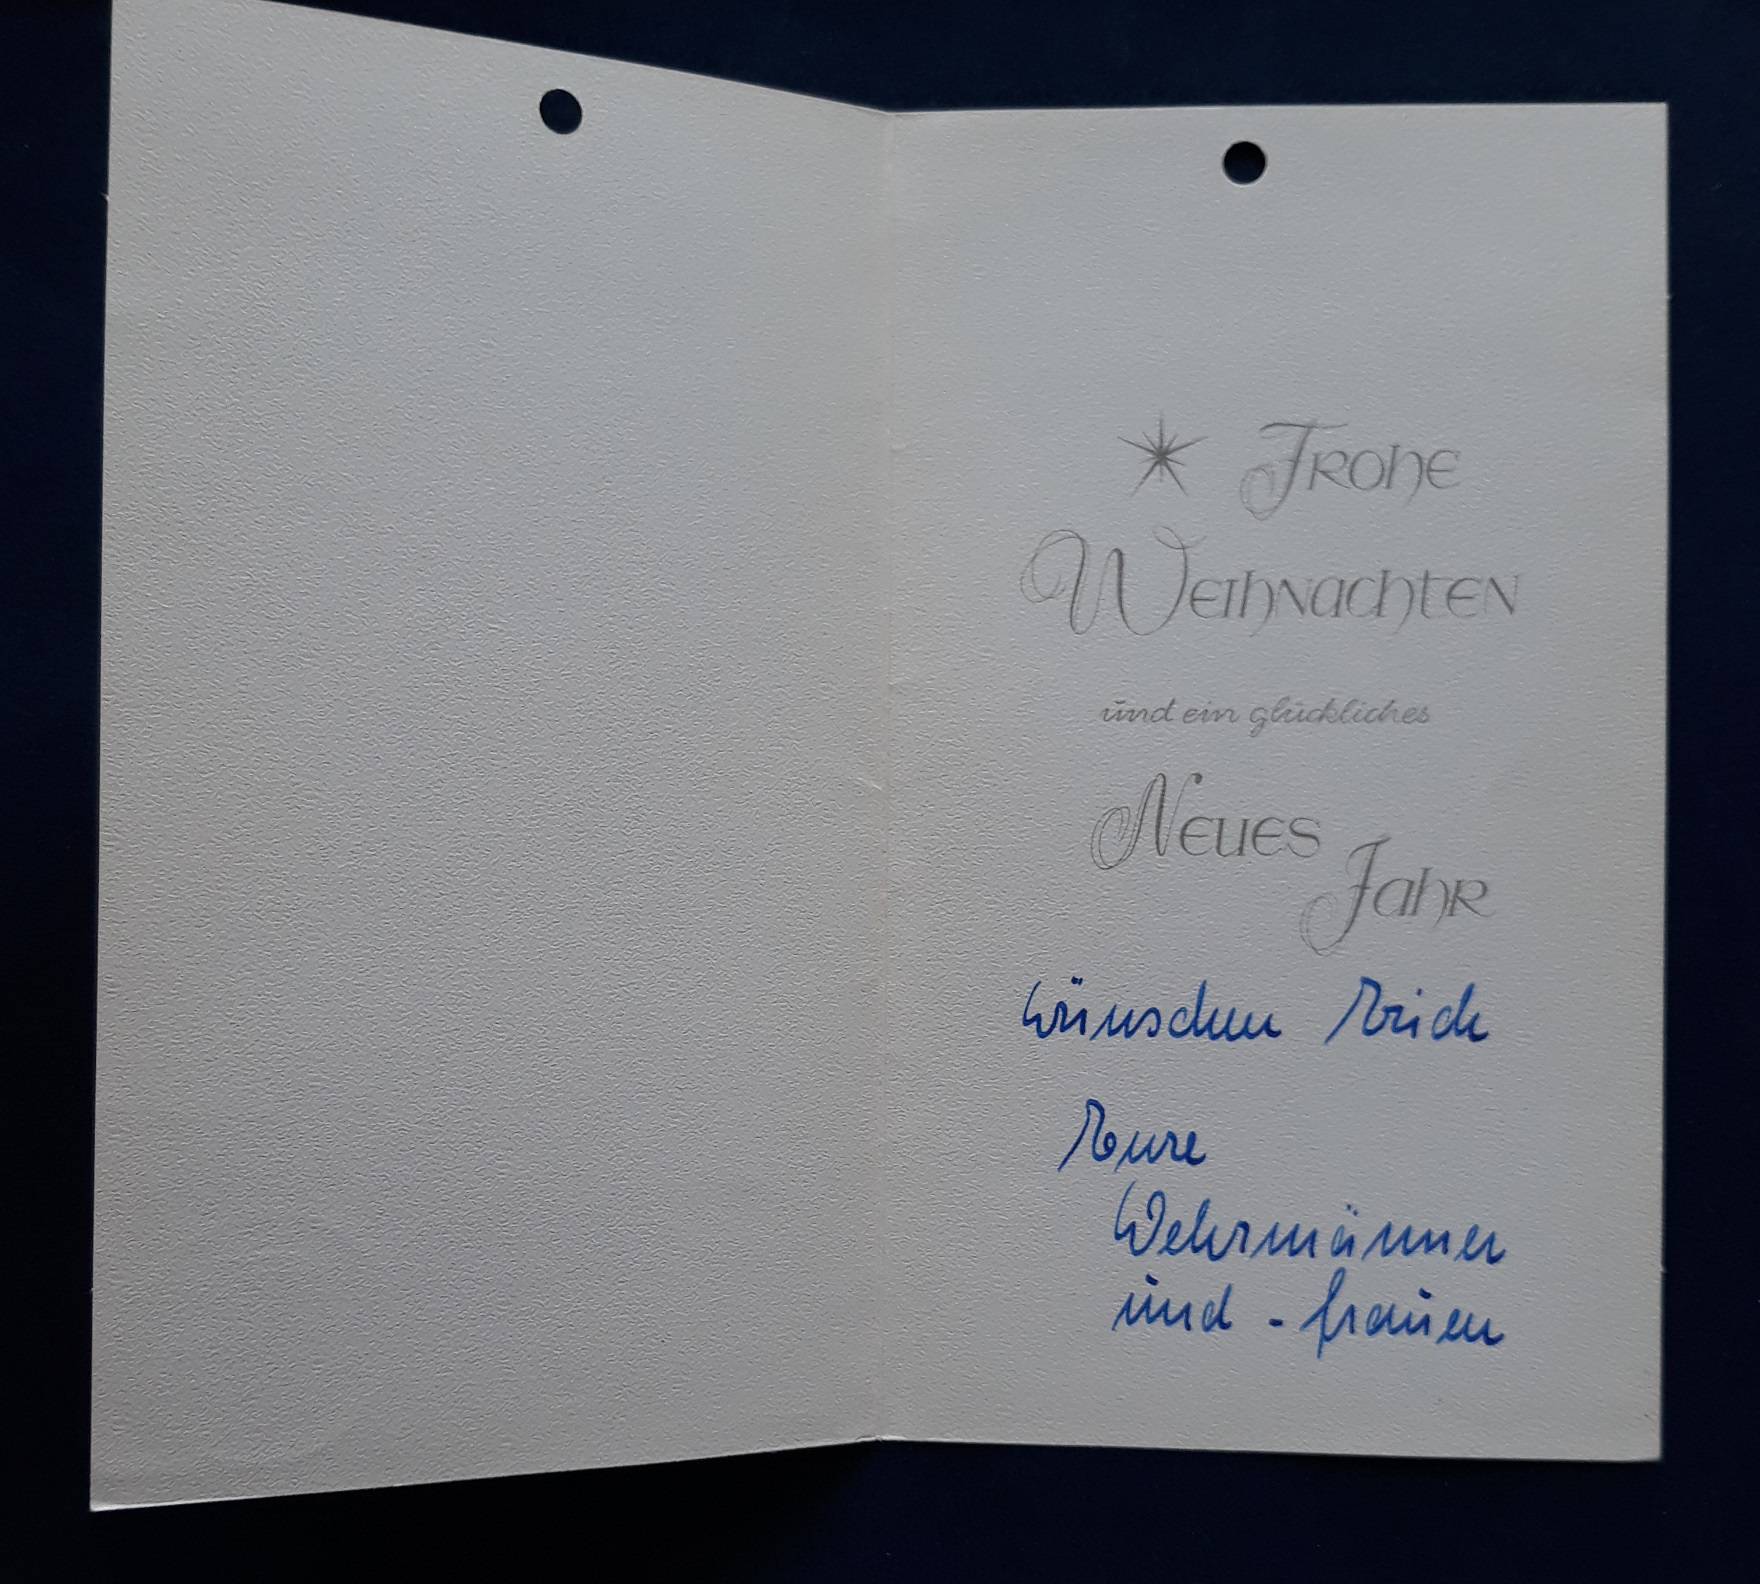 Frohe
Weihnachten
und ein glückliches
Neues
Jahr
wünschen Erich
Eure
Wehrmänner
und - frauen